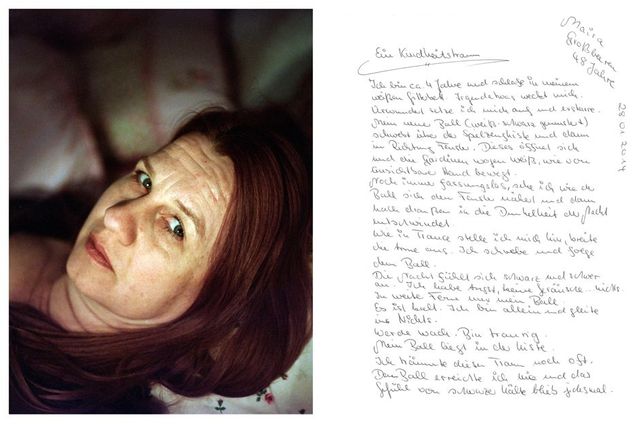 Ein Kindheitstraum
Großbeeren
48 Jahre
28.01.2014
Ich bin ca. 4 Jahre und schlafe in meinem
weißen Gitterbett. Irgendetwas weckt mich.
Verwundert setze ich mich auf und erstarre.
Mein neuer Ball (weiß-schwarz gemustert)
schwebt über der Spielzeugkiste und dann
in Richtung Fenster. Dieses öffnet sich
und die Gardinen wogen weiß, wie von
unsichtbarer Hand bewegt.
Noch immer fassungslos, sehe ich wie der
Ball sich dem Fenster nähert und dann
nach draußen in die Dunkelheit der Nacht
entschwindet.
Wie in Trance stelle ich mich hin, breite
die Arme aus. Ich schwebe und folge
dem Ball.
Die Nacht fühlt sich schwarz und schwer
an. Ich habe Angst, keine Geräusche... nichts.
In weiter Ferne nur mein Ball.
Es ist kalt. Ich bin allein und gleite
ins Nichts.
Werde wach. Bin traurig.
Mein Ball liegt in der Kiste.
Ich träumte diesen Traum noch oft.
Den Ball erreichte ich nie und das
Gefühl von schwarzer Kälte blieb jedesmal.